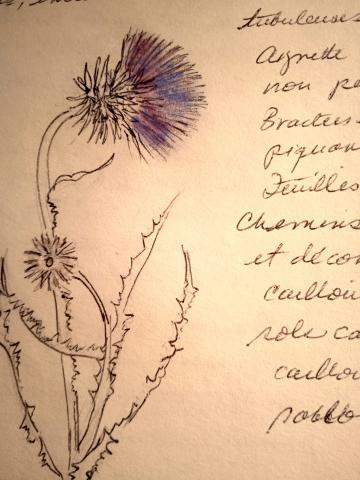 tubuleuses
Aigrette
non pe
Bractées
piquan
Feuilles
Chemins
et décom
caillou
sols ca
caillou
sablo